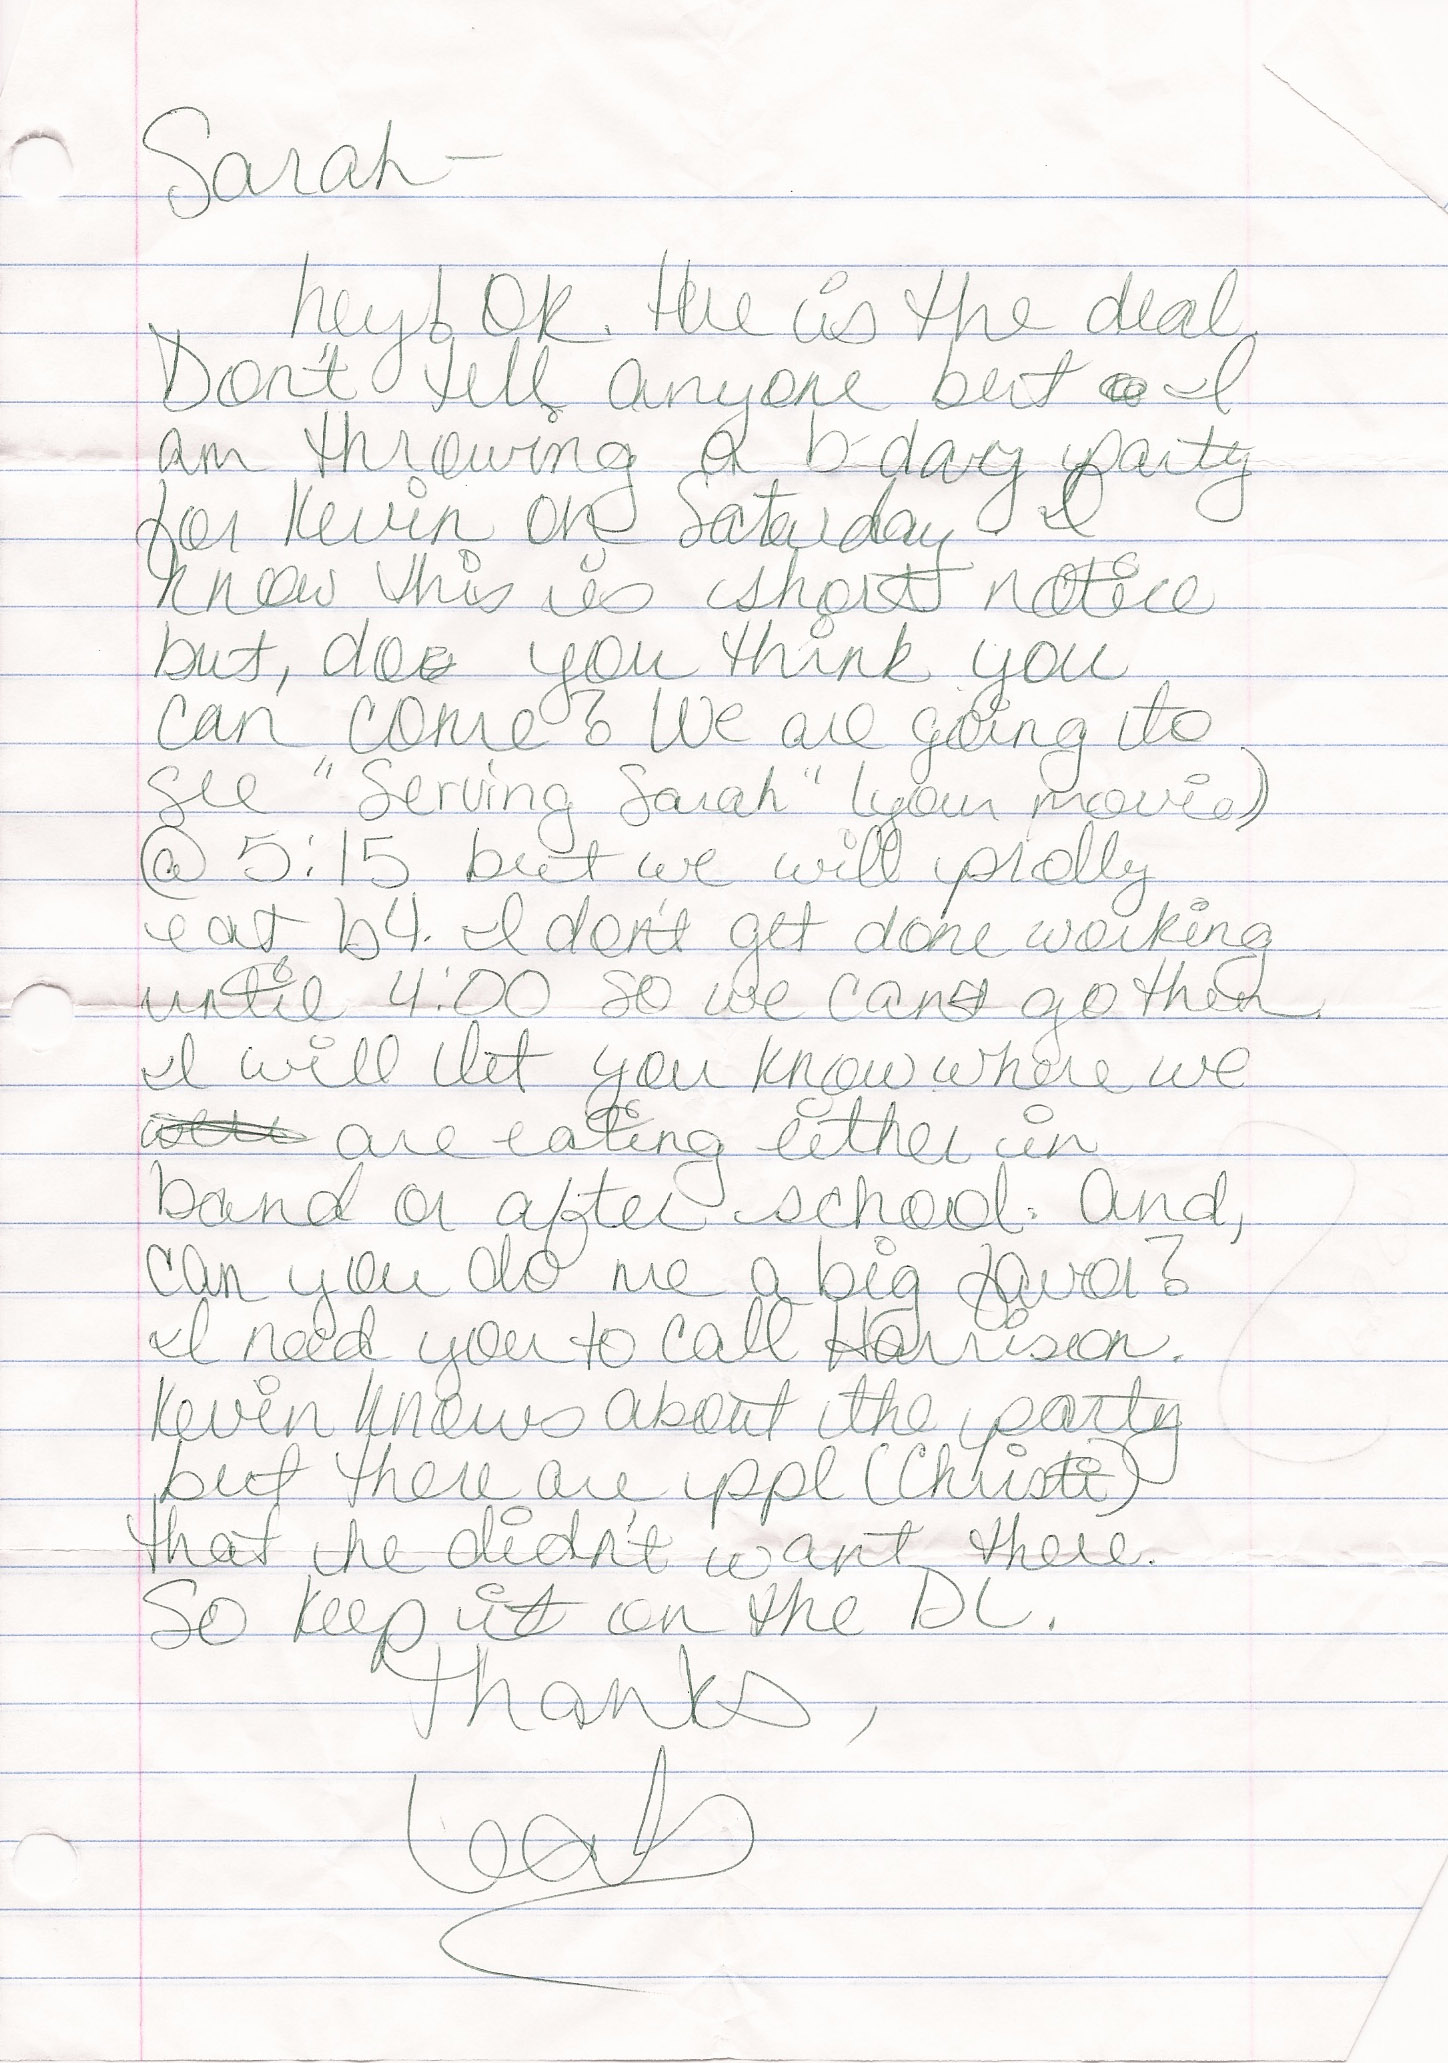 Sarah-
hey! OK. Here is the deal.
Don't tell anyone but I
am throwing a b-day party
for Kevin on Saturday. I
know this is short notice
but, do you think you
can come? We are going to
see "Serving Sarah" (your movie)
@ 5:15 but we will prolly
eat b4. I don't get done working
until 4:00 so we can go then.
I will let you know where we
are eating either in
band or after school. And,
can you do me a big favor?
I need you to call Harrison.
Kevin knows about the party
but there are ppl (Christi)
that he didn't want there.
So keep it on the DL.
Thanks,
Leah